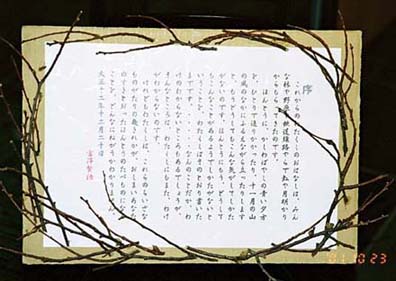 序
これからのわたくしのおはなしは、みん
な林や野原や鉄道線路やらで虹や月明かり
からもらってきたのです。
ほんとうに、かしわばやしの青い夕方
を、ひとりで通りかかったり、十一月の山
の風のなかにふるえながら立ったりします
と、もうどうしてもこんな気がしてしかた
がないのです。ほんとうにもう、どうして
もこんなことがあるようでしかたがないと
いうことを、わたくしはそのとおり書いた
までです。・・・・なんのことだか、わ
けのわからないところもあるでしょうが、
そんなところは、わたくしにもまた、わけ
がわからないのです。
けれどもわたくしは、これらのちいさな
ものがたりの幾きれかが、おしまいあなた
のすきとおったほんとうのたべものになる
ことを、どんなにねがうかわかりません。
大正十二年十二月二十日
宮澤賢治
10 23